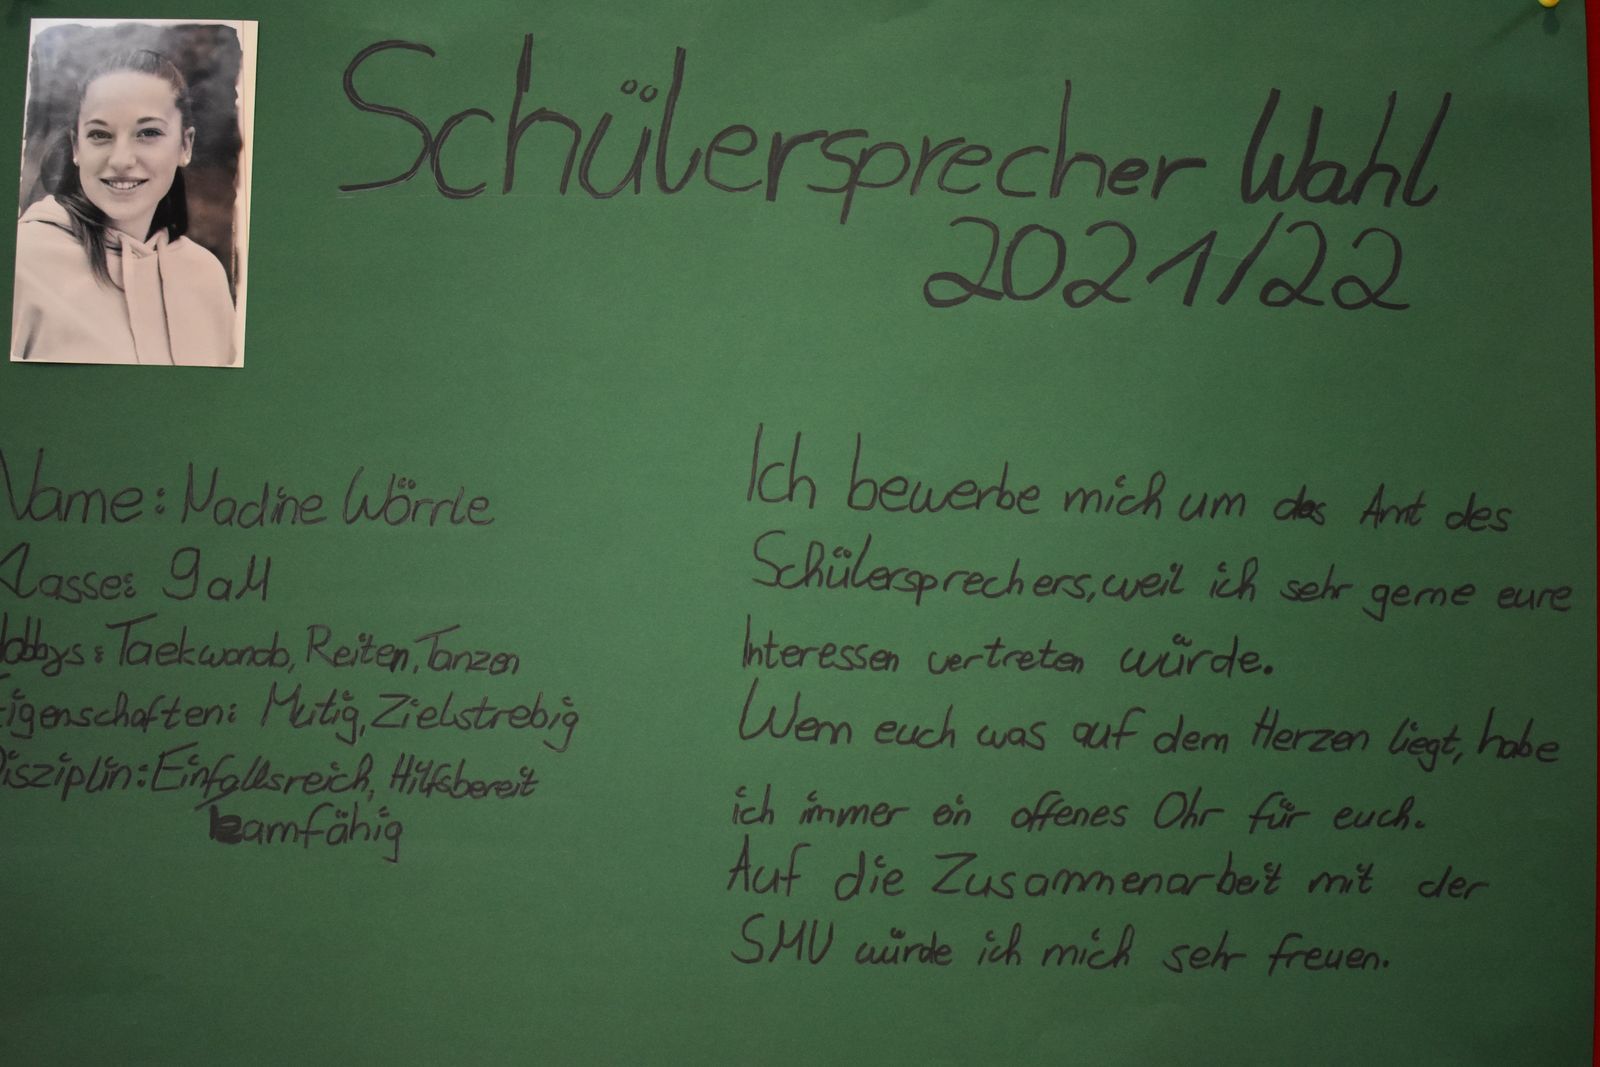 Schülersprecher Wahl
2021/22
Name: Nadine Wörrle
Klasse: 9aM
Hobbys: Taekwondo, Reiten, Tanzen
Eigenschaften: Mutig, Zielstrebig
Disziplin: Einfallsreich, Hilfsbereit
Ich bewerbe mich um das Amt des
Schülersprechers, weil ich sehr gerne eure
Interessen vertreten würde.
Wenn euch was auf dem Herzen liegt, habe
ich immer ein offenes Ohr für euch.
Auf die Zusammenarbeit mit der
SMV würde ich mich sehr freuen.